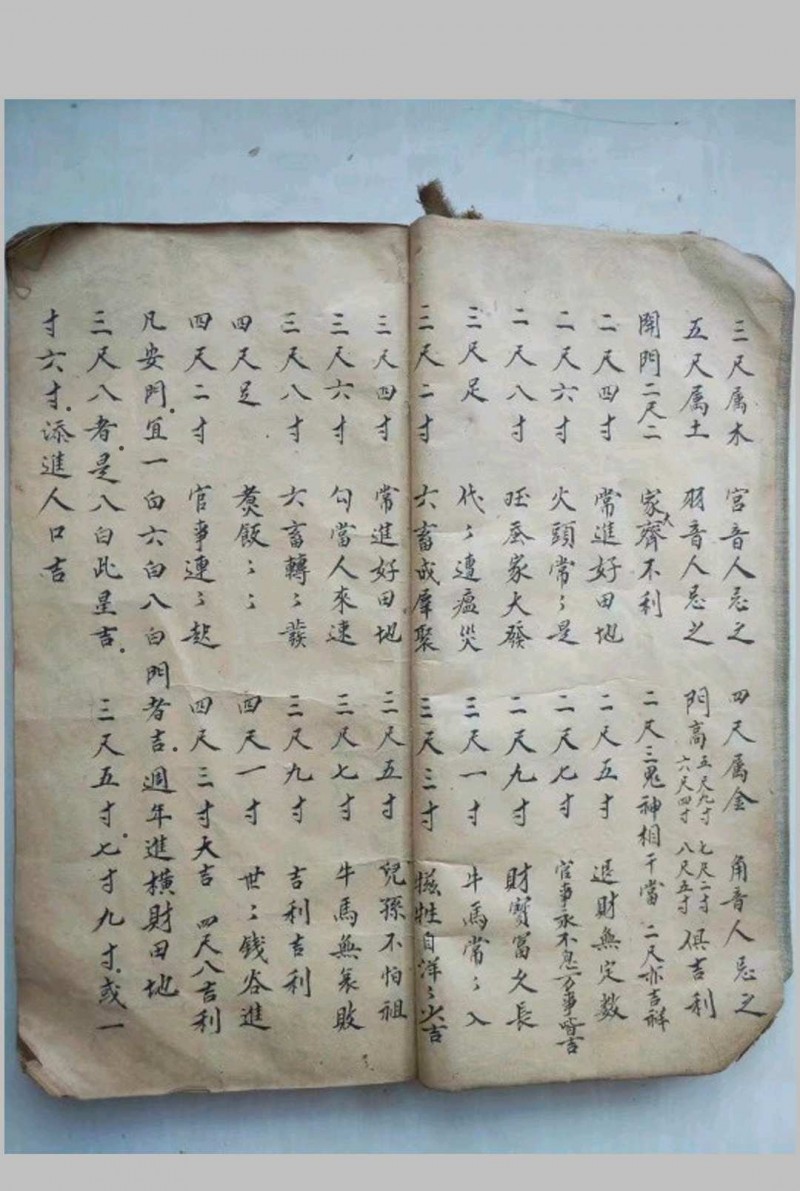 三尺属木 宮音人忌之 四尺属金 角音人忌之
五尺属土 羽音人忌之 門高五尺九寸 六尺四寸 七尺二寸 八尺五寸 俱吉利
開門二尺二 家人齊不利 二尺三鬼神相干當 二尺亦吉祥
二尺四寸 常進好田地 二尺五寸 退財無定数
二尺六寸 火頭常〻是 二尺七寸 官事永不息万事皆吉
二尺八寸 旺蚕家大發 二尺九寸 財寳富久長
三尺足 代〻遭瘟災 三尺一寸 牛馬常〻入
三尺二寸 六畜成羣聚 三尺三寸 牲自洋〻少吉
三尺四寸 常進好田地 三尺五寸 兒孫不怕祖
三尺六寸 勾當人來速 三尺七寸 牛馬無衰敗
三尺八寸 六畜轉〻發 三尺九寸 吉利吉利
四尺足 煮飯〻〻 四尺一寸 世〻錢谷進
四尺二寸 官事連〻起 四尺三寸大吉 四尺八吉利
凡安門宜一白六白八白門者吉週年進横財田地
三尺八者是八白此星吉 三尺五寸七寸九寸或一
寸六寸添進人口吉